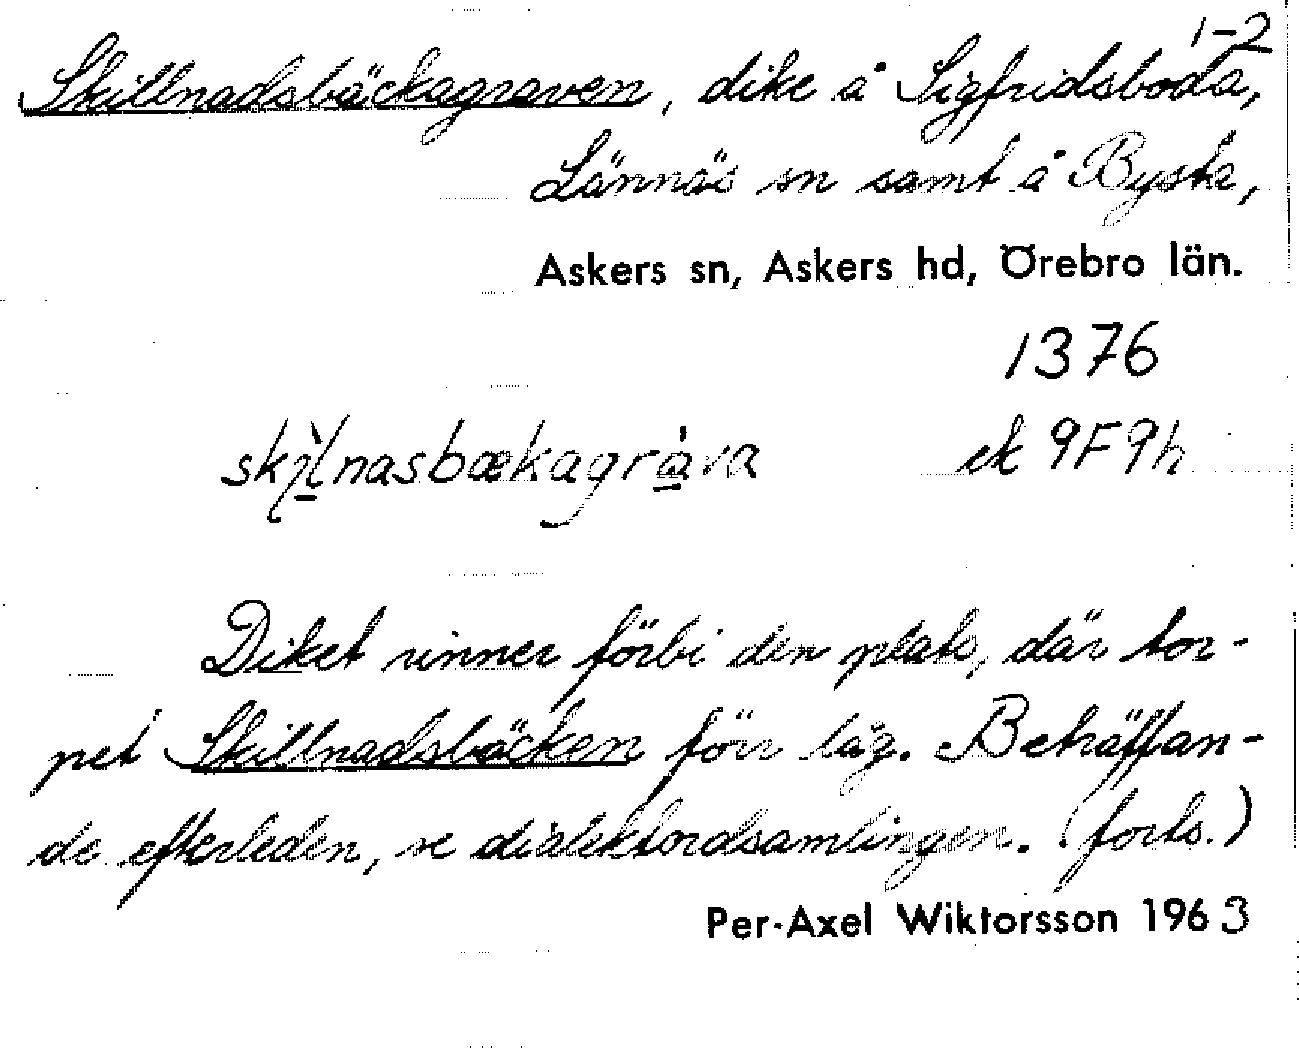 1-2
Skillnadsbäckagraven, dike å Sigfridsboda,
Lännäs sn samt å Bysta,
Askers sn, Askers hd, Örebro län.
1376
skjìlnasbækagràva ek 9F9h
Diket rinner förbi den plats, där tor-
pet Skillnadsbäcken förr låg. Beträffan-
de efterleden, se dialektordsamlingen. (forts.)
Per-Axel Wiktorsson 1963